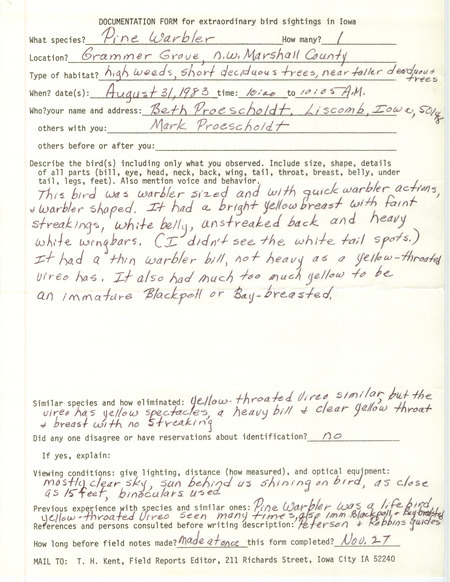 DOCUMENTATION FORM for extraordinary bird sightings in Iowa
What species? Pine Warbler How many? 1
Location? Grammer Grove, n.w. Marshall County
Type of habitat? high weeds, short deciduous trees, near taller deciduous trees
When? date(s): August 31, 1983 time: 10:00 to 10:05 A.M.
Who? your name and address: Beth Proescholdt, Liscomb, Iowa,
others with you: Mark Proescholdt
others before or after you:
Describe the bird(s) including only what you observed. Include size, shape, details
of all parts (bill, eye, head, neck, back, wing, tail, throat, breast, belly, under
tail, legs, feet). Also mention voice and behavior.
This bird was warbler sized and with quick warbler actions,
+ warbler shaped. It had a bright yellow breast with faint
streakings, white belly, unstreaked back and heavy
white wingbars. (I didn't see the white tail spots.)
It had a thin warbler bill, not heavy as a yellow-throated
vireo has. It also had much too much yellow to be
an immature Blackpoll or Bay-breasted.
Similar species and how eliminated: yellow-throated Vireo similar, but the
vireo has yellow spectacles, a heavy bill + clear yellow throat
+ breast with no streaking
Did any one disagree or have reservations about identification? no
If yes, explain:
Viewing conditions: give lighting, distance (how measured), and optical equipment:
mostly clear sky, sun behind us shining on bird, as close
as 15 feet, binoculars used
Previous experience with species and similar ones: Pine Warbler was a life bird,
yellow-throated Vireo seen many times, also imm Blackpoll + Bay breasted
References and persons consulted before writing description: Peterson + Robbins guides
How long before field notes made? made at once this form completed? Nov. 27
MAIL TO: T. H. Kent, Field Reports Editor, 211 Richards Street, Iowa City IA 52240